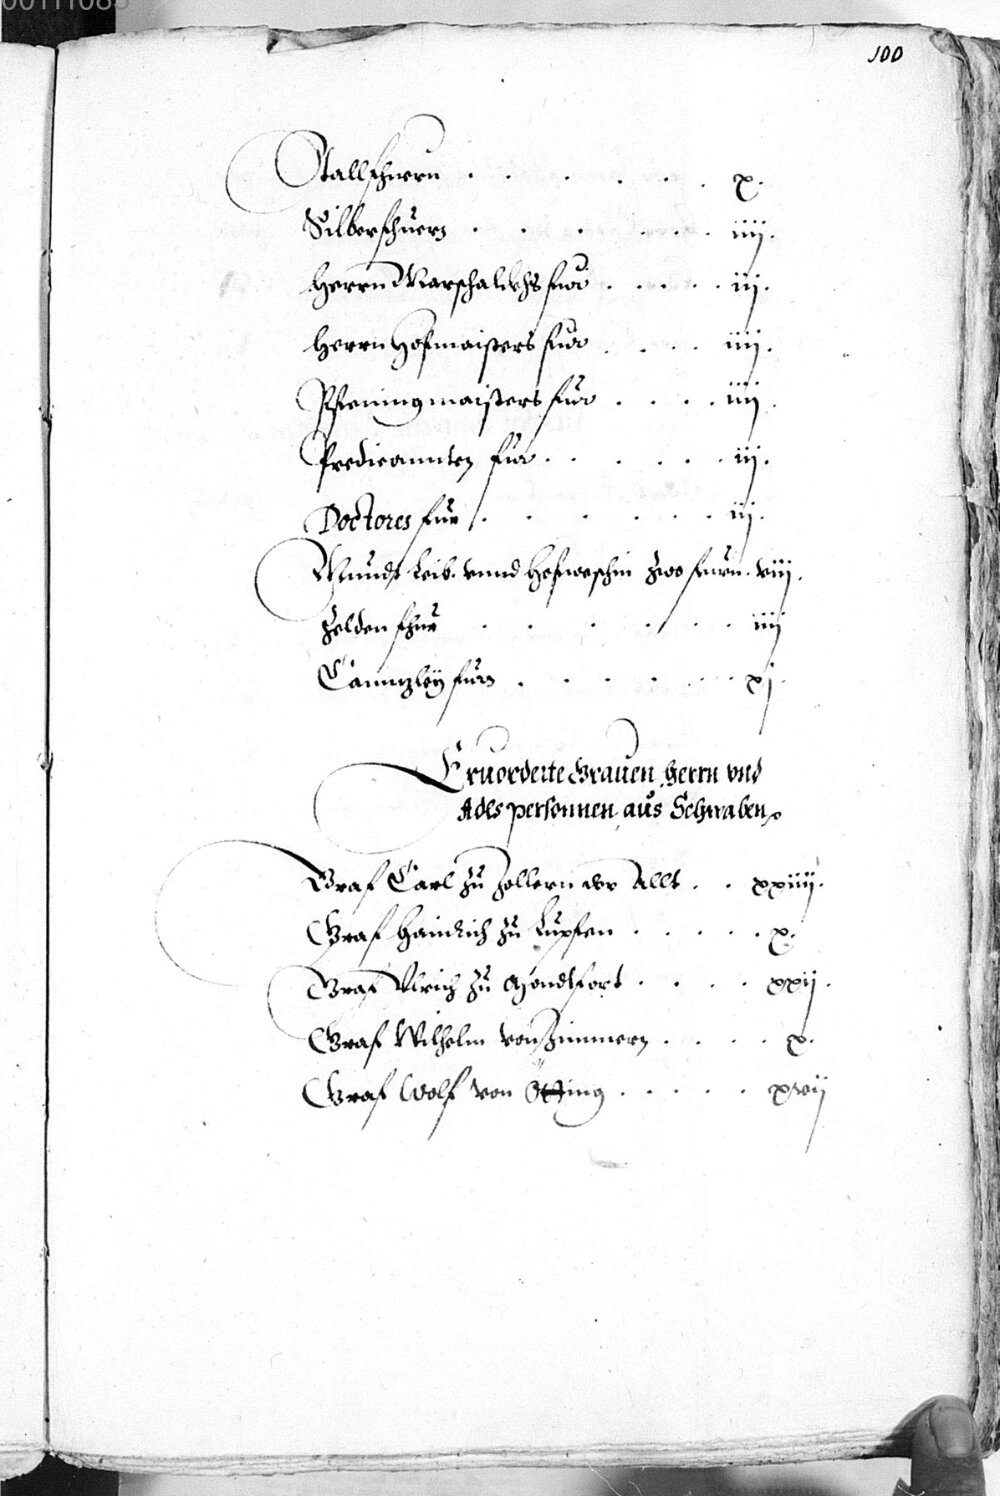 100
Stallschuern . . . . . . x.
Silberschuern . . . . . . iiij.
Herrn Marschalckhs fuer . . . . . iij.
Herrn Hofmaisters fuer . . . . iiij.
Pfeningmaisters fuer . . . . iiij.
Predicannten fuer . . . . . iij.
Doctores fuer . . . . . . iij.
Mundt Leib vnnd Hofweschin zwo fuern . viij.
Zelden fhur . . . . . . iiij
Canntzley fuer . . . . . . xj.
Eruorderte Grauen, Herrn vnd
Adls personnen, aus Schwaben
Graf Carl zu Zollern der Allt . . xxiiij.
Graf Hainrich zu Lupfen . . . . . x.
Graf Vlrich zu Mondtfort . . . . xxij.
Graf Wilhelm von Zimmern . . . . x.
Graf Wolf vonÖtting . . . . . xvij